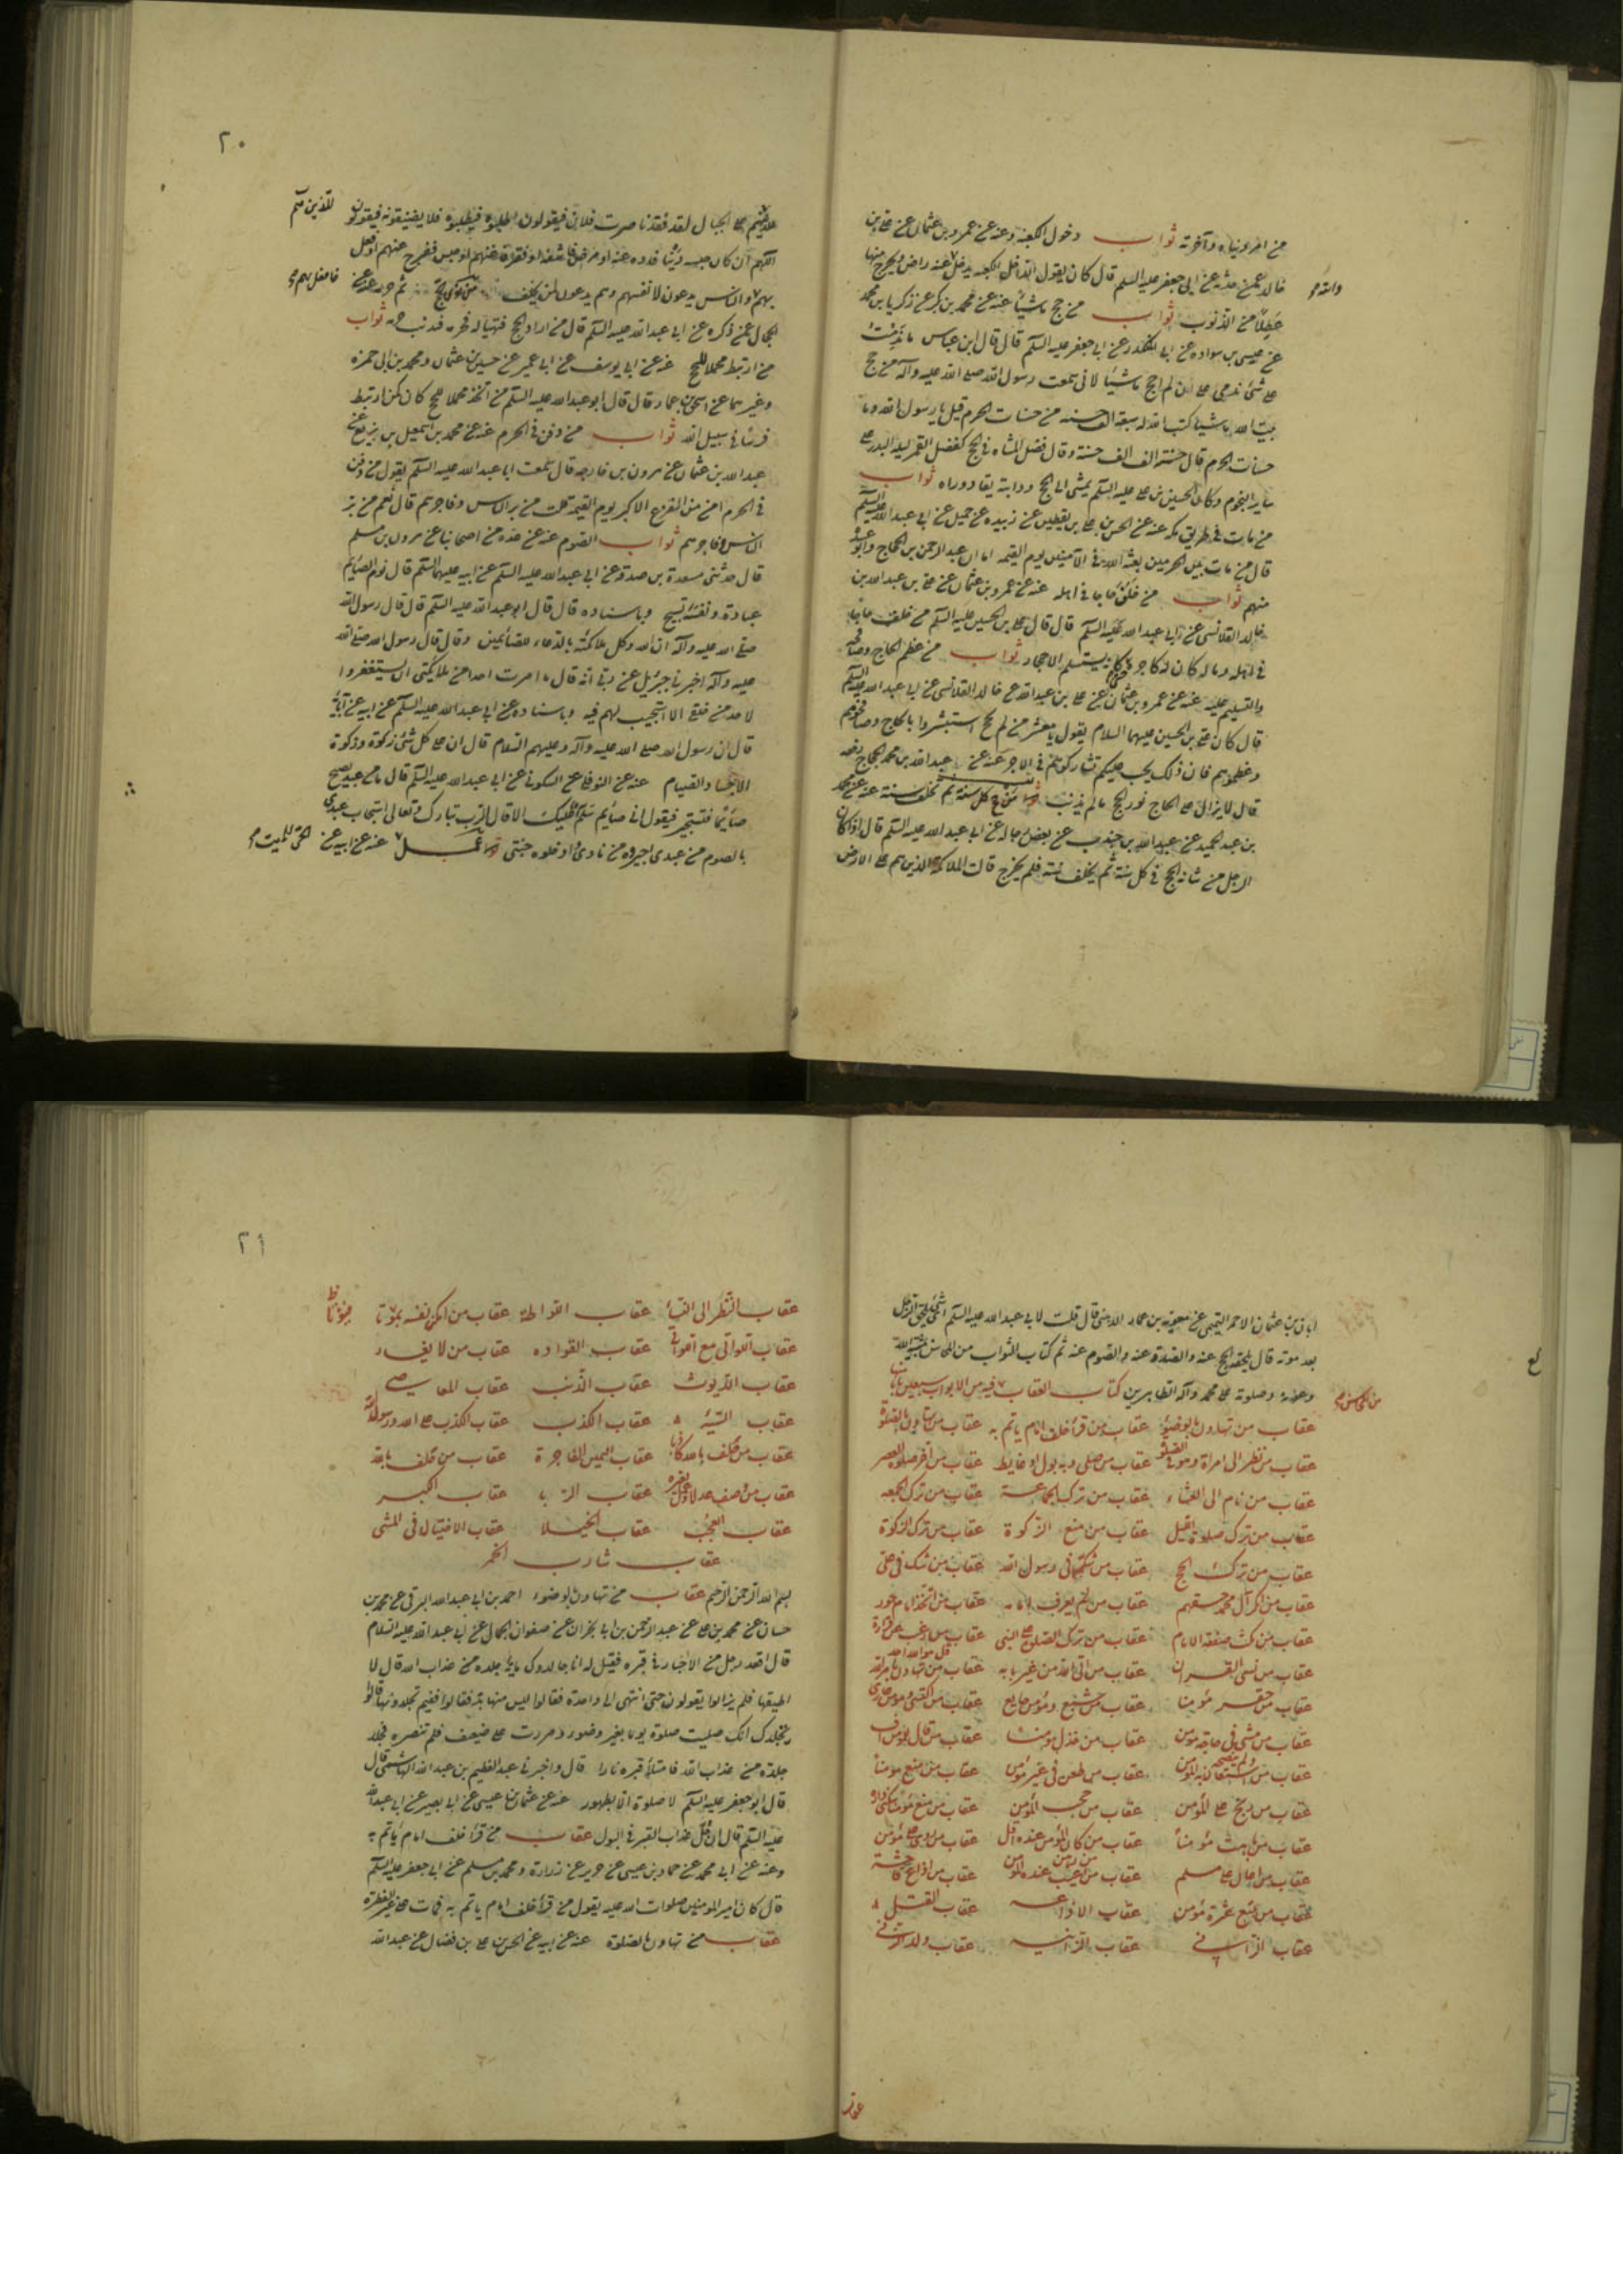 من امر دنياه وآخرته ثواب دخول الكعبة وعنه عن عمرو بن عثمان عن علي بن
خالد عمن حدثه عن ابي جعفر عليه السلم قال كان يقول الداخل الكعبة يدخل والله عنه راض ويخرج منها
عطلا من الذنوب ثواب من حج ماشيا عنه عن محمد بن بكر عن زكريا بن محمد
عن عيسى بن سواده عن ابي المنكدر عن ابي جعفر عليه السلم قال قال ابن عباس ما ندمت
على شئ ندمي على ان لم احج ماشيا لاني سمعت رسول الله صلى الله عليه وآله من حج
بيت الله ماشيا كتب الله له سبعة الف حسنه من حسنات الحرم قيل يا رسول الله وما
حسنات الحرم قال حسنة الف الف حسنة وقال فضل المشاه في الحج كفضل القمر ليلة البدر على
ساير النجوم وكان الحسين بن علي عليه السلم يمشى الى الحج ودابته يقاد وراه ثواب
من مات في طريق مكه عنه عن الحسن بن علي بن يقطين عن زبيده عن جميل عن ابي عبد الله عليه السلم
قال من مات بين الحرمين بعثه الله في الآمنين يوم القيمه اما ان عبد الرحمن بن الحجاج وابو عبيدة
منهم ثواب من خلف حاجا في اهله عنه عن عمرو بن عثمان عن علي بن عبد الله بن
خالد القلانسى عن ابي عبد الله عليه السلم قال قال علي بن الحسين عليه السلم من خلف حاجا
في اهله وماله كان له كاجره حتى كانه يستلم الاحجار ثواب من عظم الحاج وصافحه
والتسليم عليه عنه عن عمرو بن عثمان عن علي بن عبد الله عن خالد القلانسى عن ابي عبد الله عليه السلم
قال كان علي بن الحسين عليهما السلام يقول يا معشر من لم يحج استبشروا بالحاج وصافحوهم
وعظموهم فان ذلك يجب عليكم تشاركوهم في الاجر عنه عن عبد الله بن محمد الحجاج رفعه
قال لا يزال على الحاج نور الحج ما لم يذنب ثواب من حج كل سنة ثم تخلف سنة عنه عن محمد
بن عبد الحميد عن عبد الله بن جندب عن بعض رجاله عن ابي عبد الله عليه السلم قال اذا كان
الرجل من شانه الحج في كل سنة ثم يخلف سنة فلم يخرج قالت الملائكة الذين هم على الارض
٢٠
للذين هم على الجبال لقد فقدنا صوت فلان فيقولون اطلبوه فيطلبوه فلا يصيبونه فيقولون
اللهم ان كان حبسه دين فاده عنه او مرض فاشفه او فقر فاغنه او حبس ففرج عنهم او فعل فافعل بهم
بهم والناس يدعون لانفسهم وهم يدعون لمن يخلف من نوى الحج ثم حرمه عنه عن
الجمال عمن ذكره عن ابي عبد الله عليه السلم قال من اراد الحج فتهيا له فحرمه فبذنب حرمه ثواب
من ارتبط محملا للحج عنه عن ابي يوسف عن ابي عمير عن حسين بن عثمان ومحمد بن ابي حمزه
وغيرهما عن اسحق بن عمار قال قال ابو عبد الله عليه السلم من اتخذ محملا للحج كان كمن ارتبط
فرسا في سبيل الله ثواب من دفن في الحرم عنه عن محمد بن اسمعيل بن بزيع عن
عبد الله بن عثمان عن هرون بن خارجه قال سمعت ابا عبد الله عليه السلم يقول من دفن
في الحرم امن من الفزع الاكبر يوم القيمة قلت من بر الناس وفاجرهم قال نعم من بر
الناس وفاجرهم ثواب الصوم عنه عن عدة من اصحابنا عن هرون بن مسلم
قال حدثني مسعدة بن صدقة عن ابي عبد الله عليه السلم عن ابيه عليهما السلم قال نوم الصايم
عبادة ونفسه تسبيح وباسناده قال قال ابو عبد الله عليه السلم قال قال رسول الله
صلى الله عليه وآله ان الله وكل ملائكته بالدعاء للصائمين وقال قال رسول الله صلى الله
عليه وآله اخبرني جبرئيل عن ربي انه قال ما امرت احدا من ملايكتى ان يستغفروا
لاحد من خلقى الا استجيب لهم فيه وباسناده عن ابي عبد الله عليه السلم عن ابيه عن آبائه
قال ان رسول الله صلى الله عليه وآله وعليهم السلام قال ان على كل شئ زكوة وزكوة
الاجساد الصيام عنه عن النوفلي عن السكوني عن ابي عبد الله عليه السلم قال ما من عبد يصبح
صائما فتشتم فيقول اني صايم سلم عليك الا قال الرب تبارك وتعالى استجار عبدى
بالصوم من عبدى اجيروه من نارى وادخلوه جنتى ثواب عمل الحى للميت عنه عن ابيه عن
ابان بن عثمان الاحمر التميمى عن معوية بن عمار الدهنى قال قلت لابي عبد الله عليه السلم اي شئ يلحق الرجل
بعد موته قال يلحقه الحج عنه والصدقة عنه والصوم عنه ثم كتاب الثواب من المحاسن بمشية الله
وعونه وصلوته على محمد وآله الطاهرين كتاب العقاب من المحاسن فيه من الابواب سبعين بابا
عقاب من تهاون بالوضوء عقاب من قرأ خلف امام ياتم به عقاب من تهاون بالصلوة
عقاب من نظر الى امراة وهو في الصلوة عقاب من صلى وبه بول او غايط عقاب من اخر صلوة العصر
عقاب من نام الى العشاء عقاب من ترك الجماعة عقاب من ترك الجمعه
عقاب من ترك صلوة الليل عقاب من منع الزكوة عقاب من ترك الزكوة
عقاب من ترك الحج عقاب من شك في رسول الله عقاب من شك في علي
عقاب من انكر آل محمد حقهم عقاب من لم يعرف امامه عقاب من اتخذ امام جور
عقاب من نكث صفقة الامام عقاب من ترك الصلوة على النبي عقاب من رغب عن قراءة قل هو الله احد
عقاب من نسى القران عقاب من اتى الله من غير بابه عقاب من تهاون بامر الله
عقاب من حقر مؤمنا عقاب من شبع ومؤمن جايع عقاب من اكتسى ومؤمن عارى
عقاب من مشى في حاجة مؤمن ولم ينصحه عقاب من خذل مؤمنا عقاب من قال لمؤمن اف
عقاب من استعان به المؤمن عقاب من طعن في عين مؤمن عقاب من منع مومنا
عقاب من وبخ على المؤمن عقاب من حجب المؤمن عقاب من منع مؤمنا سكنى داره
عقاب من باهت مؤمنا عقاب من كان المؤمن عنده اقل عقاب من روى على مؤمن
عقاب من احال على مسلم عقاب من اغتيب عنده المؤمن عقاب من اذاع فاحشة
عقاب من تتبع عثرة مؤمن عقاب الاذاعه عقاب القتل
عقاب الزاني عقاب الزانيه عقاب ولد الزنى
عقاب
٢١
عقاب النظر الى النساء عقاب اللواطة عقاب من امكن نفسه يؤتى
عقاب اللواتى مع اللواتى عقاب القواده عقاب من لا يغار
عقاب الديوث عقاب الذنب عقاب المعاصى
عقاب السيئه عقاب الكذب عقاب الكذب على الله ورسوله
عقاب من حلف بالله كاذبا عقاب اليمين الفاجرة عقاب من حلف بالله
عقاب من وصف عدلا وعمل بغيره عقاب الريا عقاب الكبر
عقاب العجب عقاب الخيلا عقاب الاختيال في المشى
عقاب شارب الخمر
بسم الله الرحمن الرحيم عقاب من تهاون بالوضوء احمد بن ابي عبد الله البرقى عن محمد بن
حسان عن محمد بن علي عن عبد الرحمن بن ابي نجران عن صفوان الجمال عن ابي عبد الله عليه السلام
قال اقعد رجل من الاخيار في قبره فقيل له انا جالدوك ماية جلدة من عذاب الله قال لا
اطيقها فلم يزالوا يقولون حتى انتهى الى واحدة فقالوا ليس منها بد فقال فيم تجلدونيها قالوا
نجلدك انك صليت صلوة يوما بغير وضوء ومررت على ضعيف فلم تنصره فجلد
جلدة من عذاب الله فامتلأ قبره نارا قال واخبرني عبد العظيم بن عبد الله الهاشمى قال
قال ابو جعفر عليه السلم لا صلوة الا بطهور عنه عن عثمان بن عيسى عن ابي بصير عن ابي عبد الله
عليه السلم قال ان جل عذاب القبر في البول عقاب من قرأ خلف امام ياتم به
وعنه عن ابي محمد عن حماد بن عيسى عن حريز عن زرارة ومحمد بن مسلم عن ابي جعفر عليه السلم
قال كان امير المومنين صلوات الله عليه يقول من قرأ خلف امام ياتم به فمات على غير الفطرة
عقاب من تهاون بالصلوة عنه عن ابيه عن الحسن بن علي بن فضال عن عبد الله